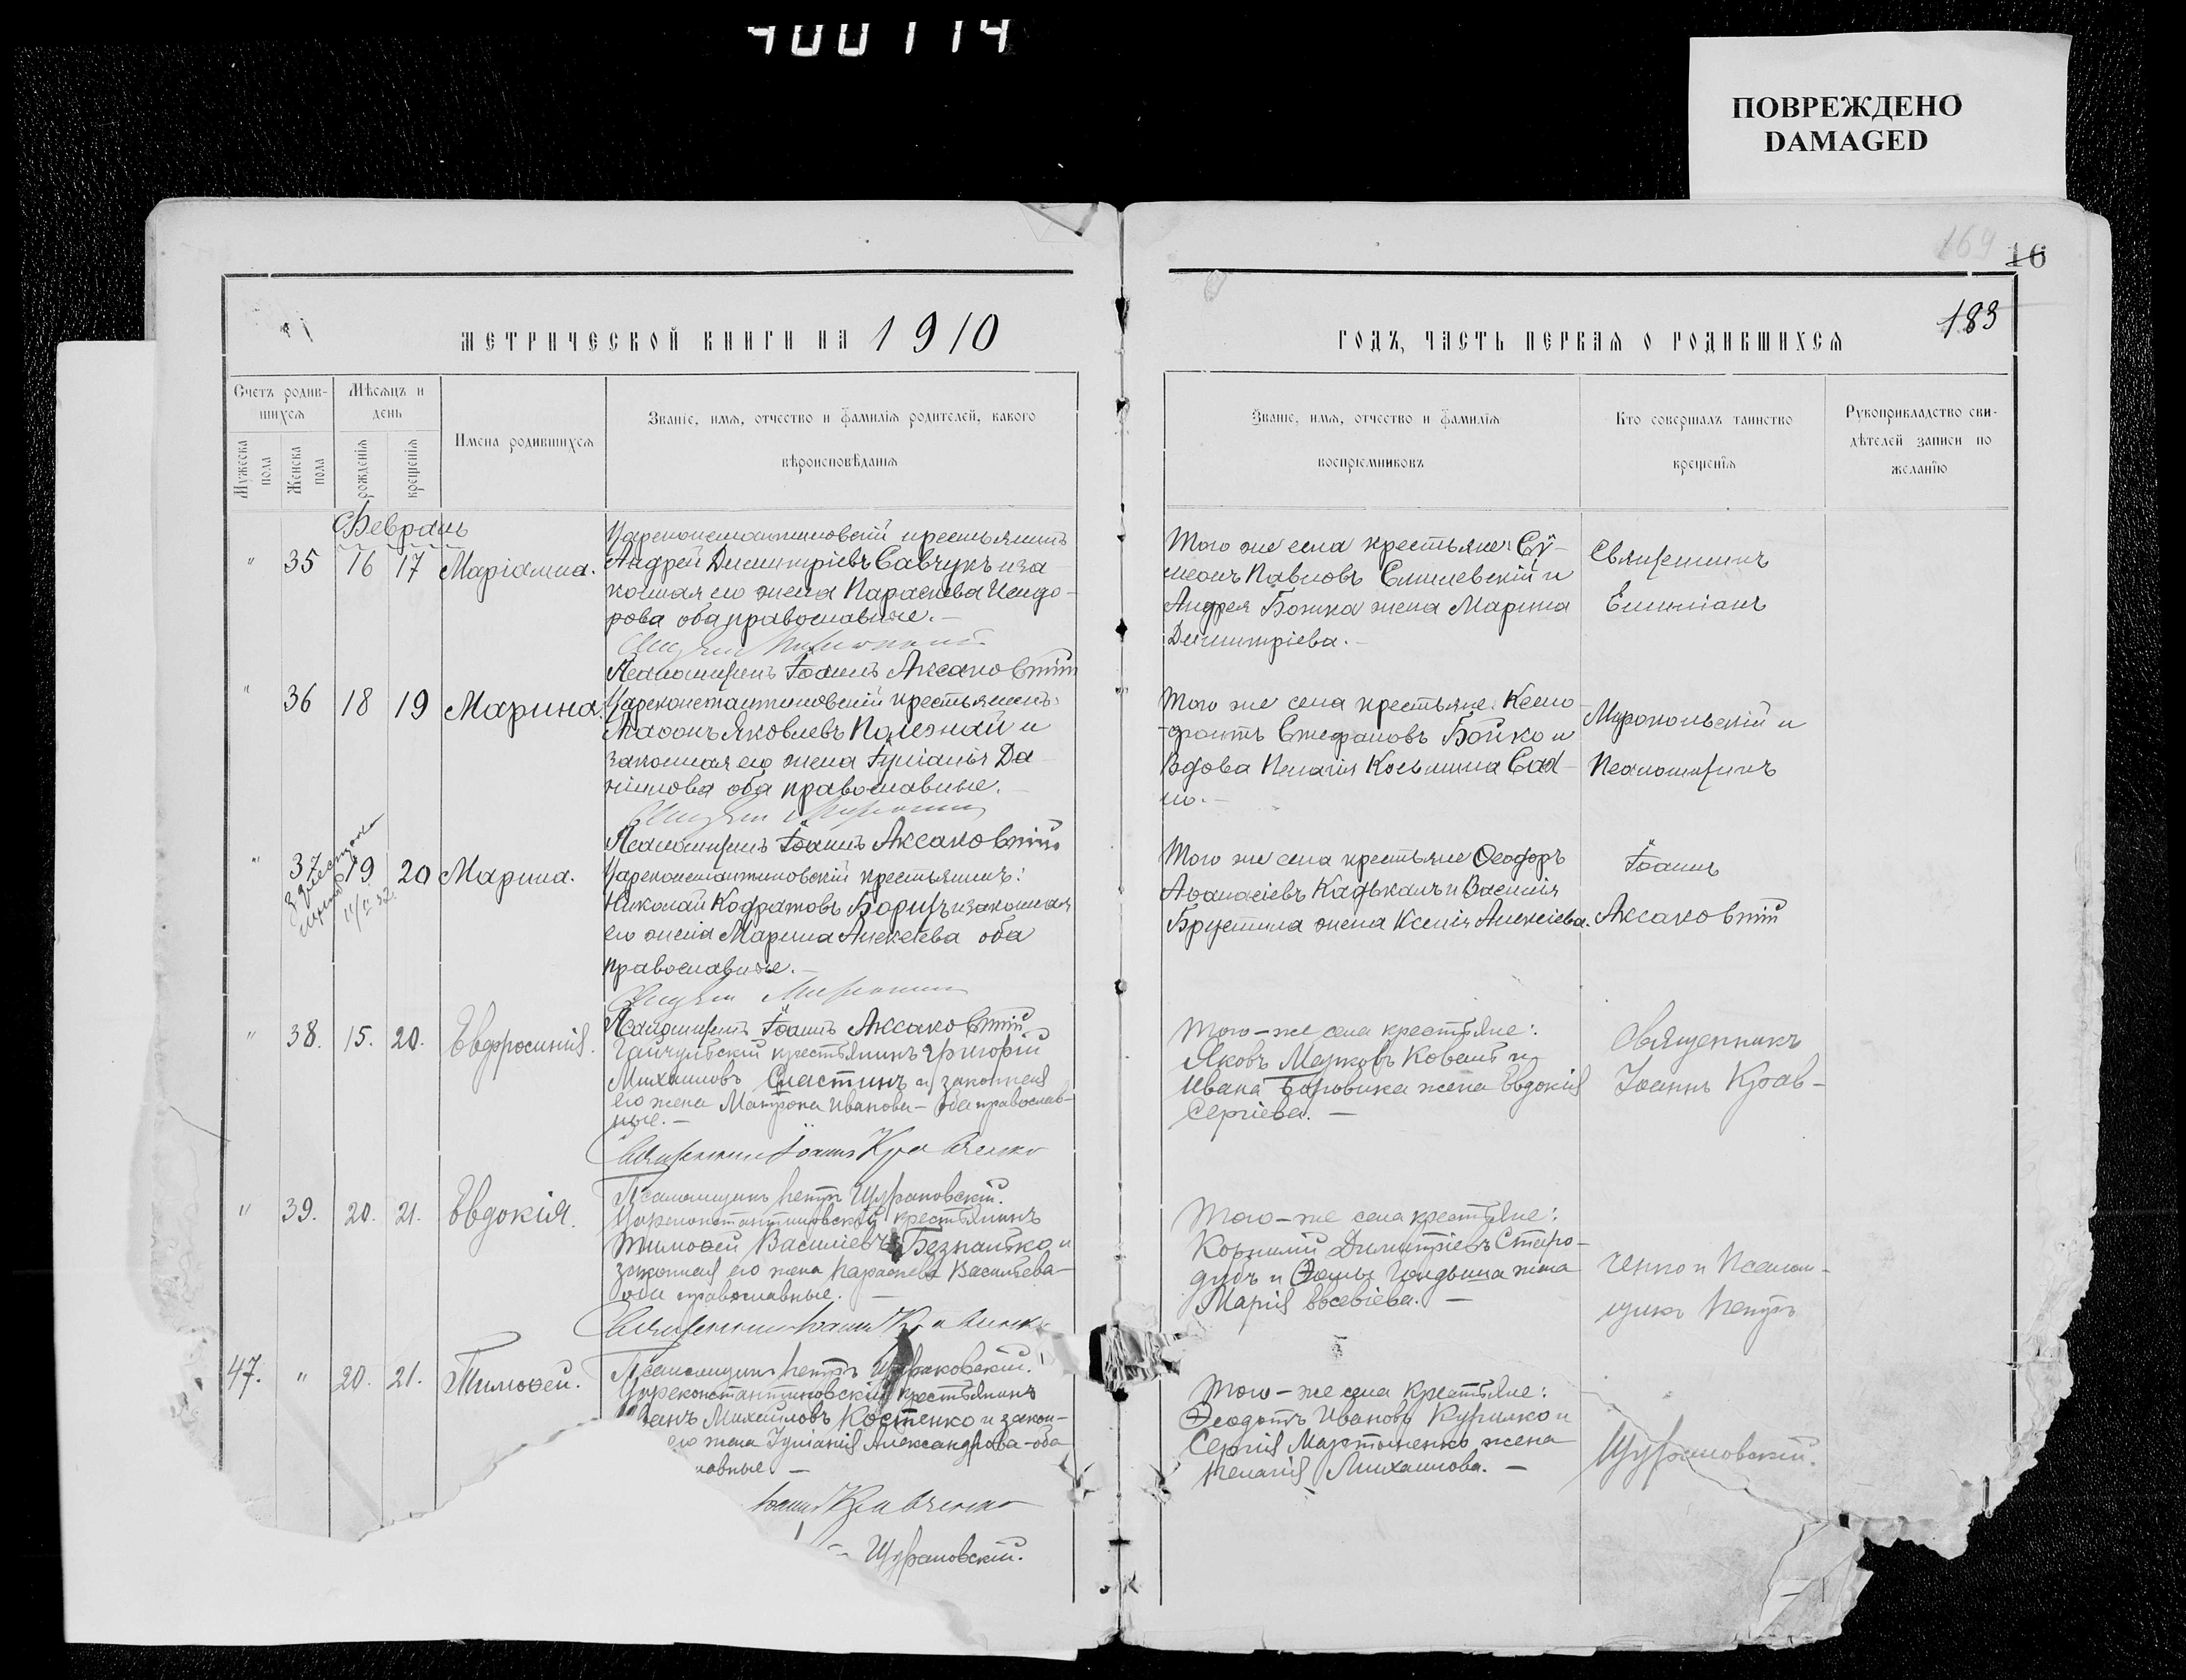 400114
ПОВРЕЖДЕНО
DAMAGED
169
16
183
МЕТРИЧЕСКОЙ КНИГИ НА 1910
ГОДЪ, ЧАСТЬ ПЕРВАЯ О РОДИВШИХСЯ
Счетъ родившихся
Мужеска пола
Женска пола
Мѣсяцъ и день
рожденія
крещенія
Имена родившихся
Званіе, имя, отчество и фамилія родителей, какого
вѣроисповѣданія
Званіе, имя, отчество и фамилія
воспріемниковъ
Кто совершалъ таинство
крещенія
Рукоприкладство сви-
дѣтелей записи по
желанію
Февраль
" 35 16 17 Маріамна.
Цареконстантиновскій крестьянинъ
Андрей Димитріевъ Савчукъ и за
конная его жена Параскева Исидо-
рова оба православные.-
Псаломщикъ Іоаннъ Аксаковскій
Того же села крестьяне: Сѵ-
меонъ Павловъ и
Андрея Божка жена Марина
Димитріева.-
Священникъ
Емиліанъ
" 36 18 19 Марина.
Цареконстантиновскій крестьянинъ:
Яковлевъ Полезнай и
законная его жена Іуліанія Да-
нилова оба православные.-
Псаломщикъ Іоаннъ Аксаковскій
Того же села крестьяне: Ксено-
фонтъ Стефановъ Бойко и
Вдова Пелагія Косьмина Сах-
но.-
и
Псаломщикъ
" 37 19 20 Марина.
Цареконстантиновскій крестьянинъ:
Николай Кодратовъ Борицъ и законная
его жена Марина Алексѣева оба
православные.-
Псаломщикъ Іоаннъ Аксаковскій
Того же села крестьяне Ѳеодоръ
Аѳанасіевъ и Василія
жена Ксенія Алексіева.
Іоаннъ
Аксаковскій
" 38. 15. 20. Евфросинія.
Гайчульскій крестьянинъ Григорій
Михаиловъ Сластинъ и законная
его жена Матрона Иванова - оба православ-
ные.-
Священникъ Іоаннъ Кравченко
Псаломщикъ Петръ
Того-же села крестьяне:
Яковъ Марковъ Коваль и
Ивана Боровика жена Евдокія
Сергіева.-
Священникъ
Іоаннъ Крав-
" 39. 20. 21. Евдокія.
Цареконстантиновскій крестьянинъ
Тимоѳей Василіевъ Безпалько и
законная его жена Параскева Василіева-
оба православные.-
Священникъ Іоаннъ Кравченко
Псаломщикъ Петръ
Того-же села крестьяне:
Корнилій Димитріевъ Старо-
дубъ и Ѳомы жена
Марія Евсевіева.-
ченко и Псалом-
щикъ Петръ
47. " 20. 21. Тимоѳей.
Цареконстантиновскій крестьянинъ
ванъ Михаиловъ Костенко и закон-
его жена Іуліанія Александрова - оба
лавные -
Іоаннъ Кравченко
Того-же села крестьяне:
Ѳеодотъ Ивановъ Курилко и
Сергія Мартыненко жена
Пелагія Михаилова.-